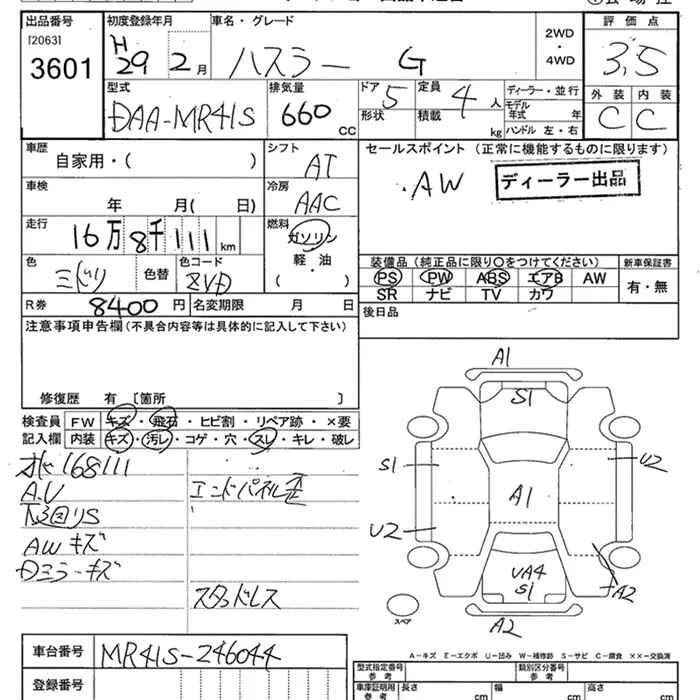 出品番号 初度登録年月 車名・グレード 評価点
[2063]
3601
H29 2月 ハスラー G 2WD・4WD 3.5
型式 排気量 ドア 定員 ディーラー・並行 外装 内装
DAA-MR41S 660 CC 5 4人 モデル年式 年 C C
形状 積載 kg ハンドル 左・右
車歴 シフト セールスポイント (正常に機能するものに限ります)
自家用・( ) AT
・AW ディーラー出品
車検 冷房
年 月( 日) AAC
走行 燃料
16万8千111km ガソリン
軽・油
( )
色 色替 色コード
ミドリ ZVD
装備品 (純正品に限り○をつけてください) 新車保証書
PS PW ABS エアB AW 有・無
SR ナビ TV カワ
R券 8400円 名変期限 月 日
後日品
注意事項申告欄 (不具合内容等は具体的に記入して下さい)
修復歴 有 [箇所 ]
検査員 FW キズ・飛石・ヒビ割・リペア跡・×要
記入欄 内装 キズ・汚レ・コゲ・穴・スレ・キレ・破レ
168111
A.U エンドパネル歪
下回りS
AWキズ
Dミラーキズ
スタッドレス
A1
S1
S1 U2
A1
U2
UA4
S1
A2
A2
スペア
A-キズ E-エクボ U-凹み W-補修跡 S-サビ C-腐食 ××-交換済
車台番号 MR41S-246044
登録番号
型式指定番号 参考 類別区分番号 参考
車庫証明用 参考 長さ cm 幅 cm 高さ cm